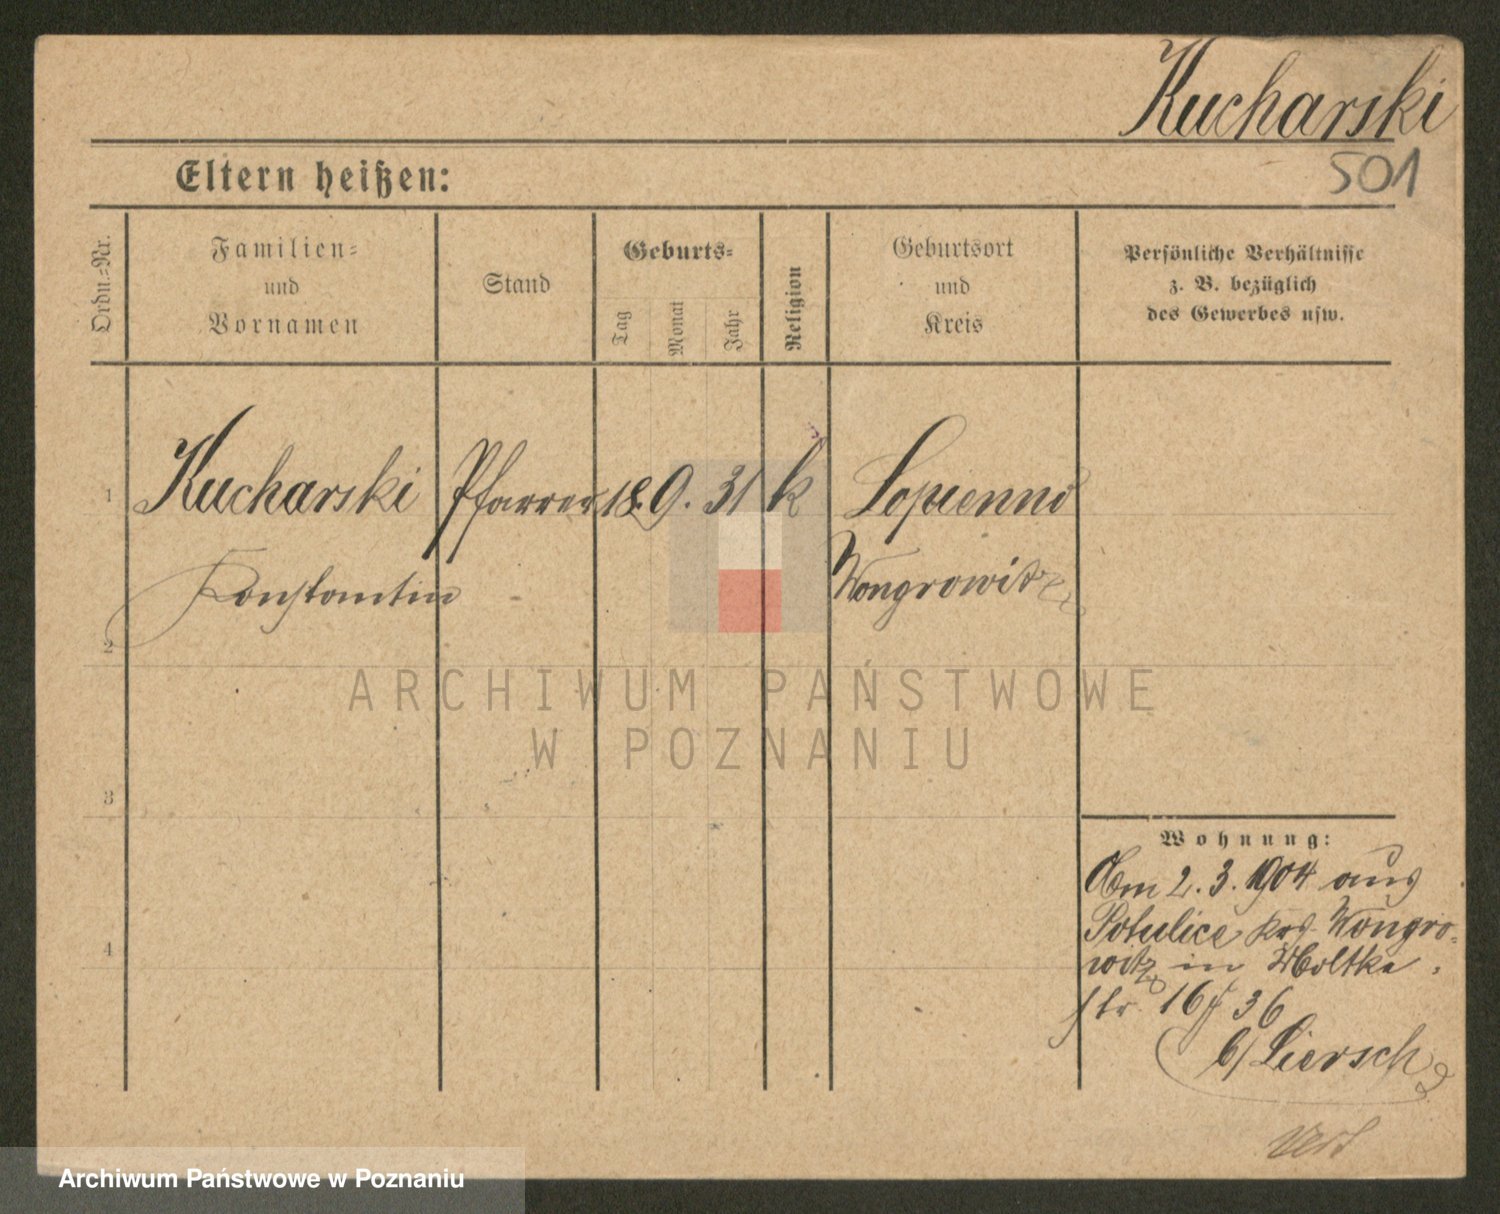 Kucharski
501
Eltern heißen:
Ordn.=Nr.
Familien=
und
Vornamen
Stand
Geburts=
Tag
Monat
Jahr
Religion
Geburtsort
und
Kreis
Persönliche Verhältnisse
z. B. bezüglich
des Gewerbes usw.
1
Kucharski
Pfarrer
18. 9. 31
k
Lopienno
Konstantin
Wongrowitz
2
ARCHIWUM PAŃSTWOWE
W POZNANIU
3
Wohnung:
Am 2. 3. 1904 aus
Potulice Krs Wongro-
4
witz in Moltke
str 16/ 36
b/ Liersch
Archiwum Państwowe w Poznaniu